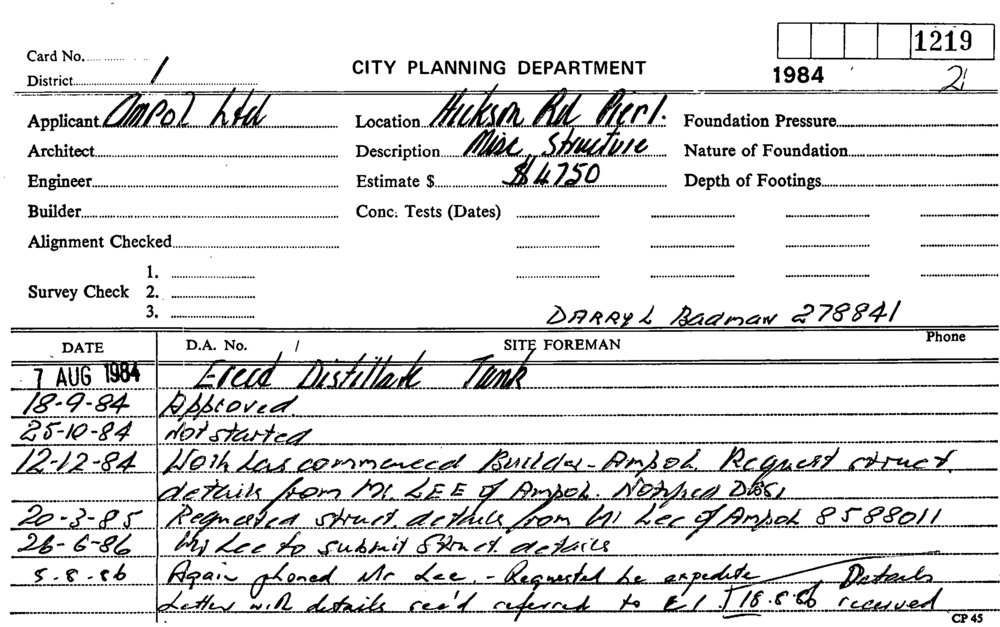 1219
Card No.
CITY PLANNING DEPARTMENT
1984 21
District 1
Applicant Ampol Ltd Location Hickson Rd Pier 1. Foundation Pressure
Architect Description Misc Structure Nature of Foundation
Engineer Estimate $ $4750 Depth of Footings
Builder Conc. Tests (Dates)
Alignment Checked
1.
Survey Check 2.
3.
DARRYL Badman 278841
DATE D.A. No. / SITE FOREMAN Phone
7 AUG 1984 Erect Distillate Tank
18-9-84 Approved.
25-10-84 Not started
12-12-84 Work has commenced Builder - Ampol Request struct.
details from Mr. LEE of Ampol. Notified DBS1
20-3-85 Requested struct. details from Mr Lee of Ampol 8588011
26-6-86 Mr Lee to submit Struct. details
5.8.86 Again phoned Mr Lee. - Requested he expedite Details
Letter with details rec'd referred to E1. 18.8.86 received
CP 45